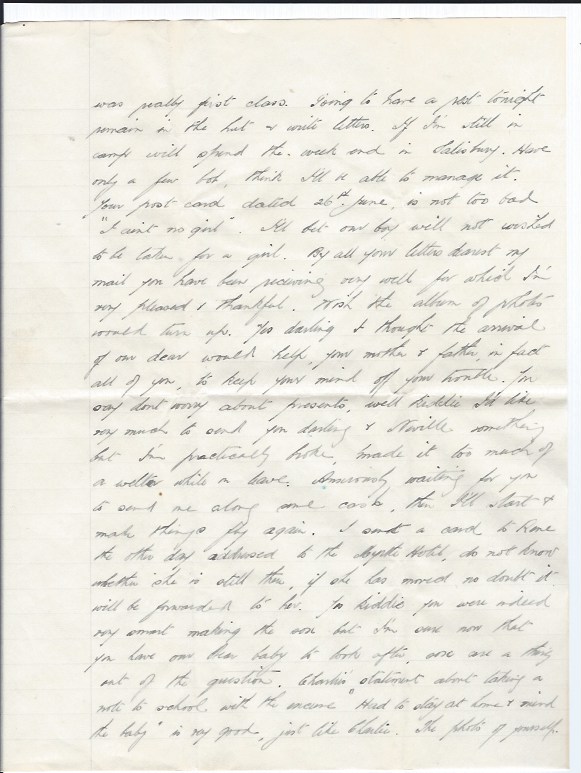 was really first class. Going to have a rest tonight
remain in the hut & write letters. If I'm still in
camp will spend the week end in Salisbury. Have
only a few bob, think I'll be able to manage it.
Your post card dated 26th June, is not too bad
"I aint no girl". I'll bet our boy will not wished
to be taken for a girl. By all your letters dearest my
mail you have been receiving very well for which I'm
very pleased & thankful. Wish the album of photos
would turn up. Yes darling I thought the arrival
of our dear would help, your mother & father, in fact
all of you, to keep your mind off your trouble. You
say dont worry about presents, well kiddie I'd like
very much to send you darling & Neville something
but I'm practically broke, made it too much of
a welter while on leave. Anxiously waiting for you
to send me along some cash, then I'll start &
make things fly again. I sent a card to
the other day addressed to the Hotel, do not know
whether she is still there, if she has moved no doubt it
will be forwarded to her. Yes kiddie you were indeed
very smart making the but I'm sure now that
you have our dear baby to look after, are a thing
out of the question. Charlies statement about taking a
note to school with the excuse "Had to stay at home & mind
the baby" is very good, just like Charlie. The photo of yourself